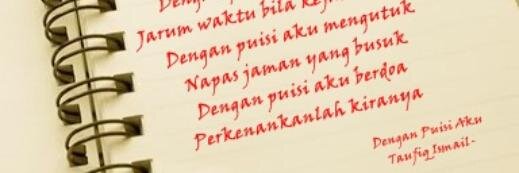 Jarum waktu bila
Dengan puisi aku mengutuk
Napas jaman yang busuk
Dengan puisi aku berdoa
Perkenankanlah kiranya
Dengan Puisi Aku
Taufiq Ismail-